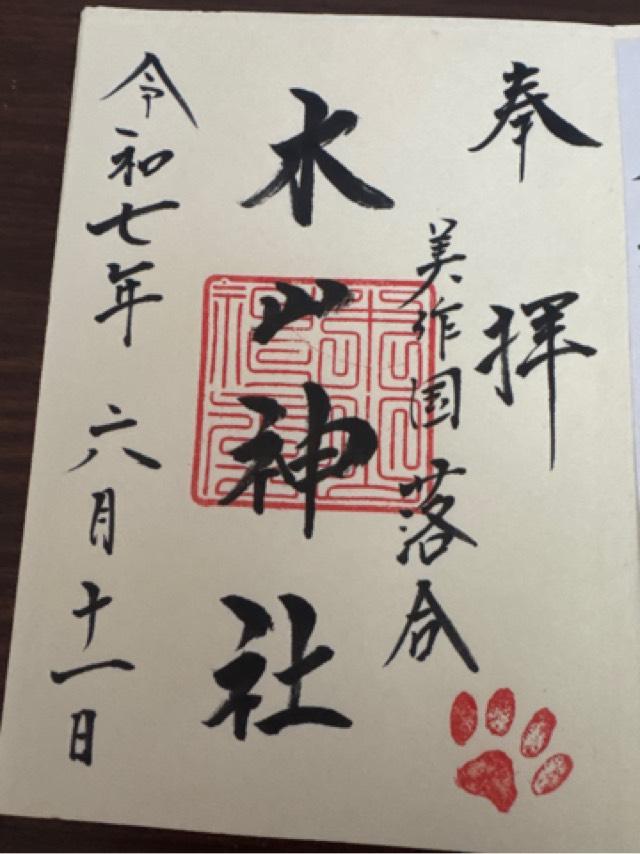 奉拝
美作国落合
木山神社
令和七年 六月十一日